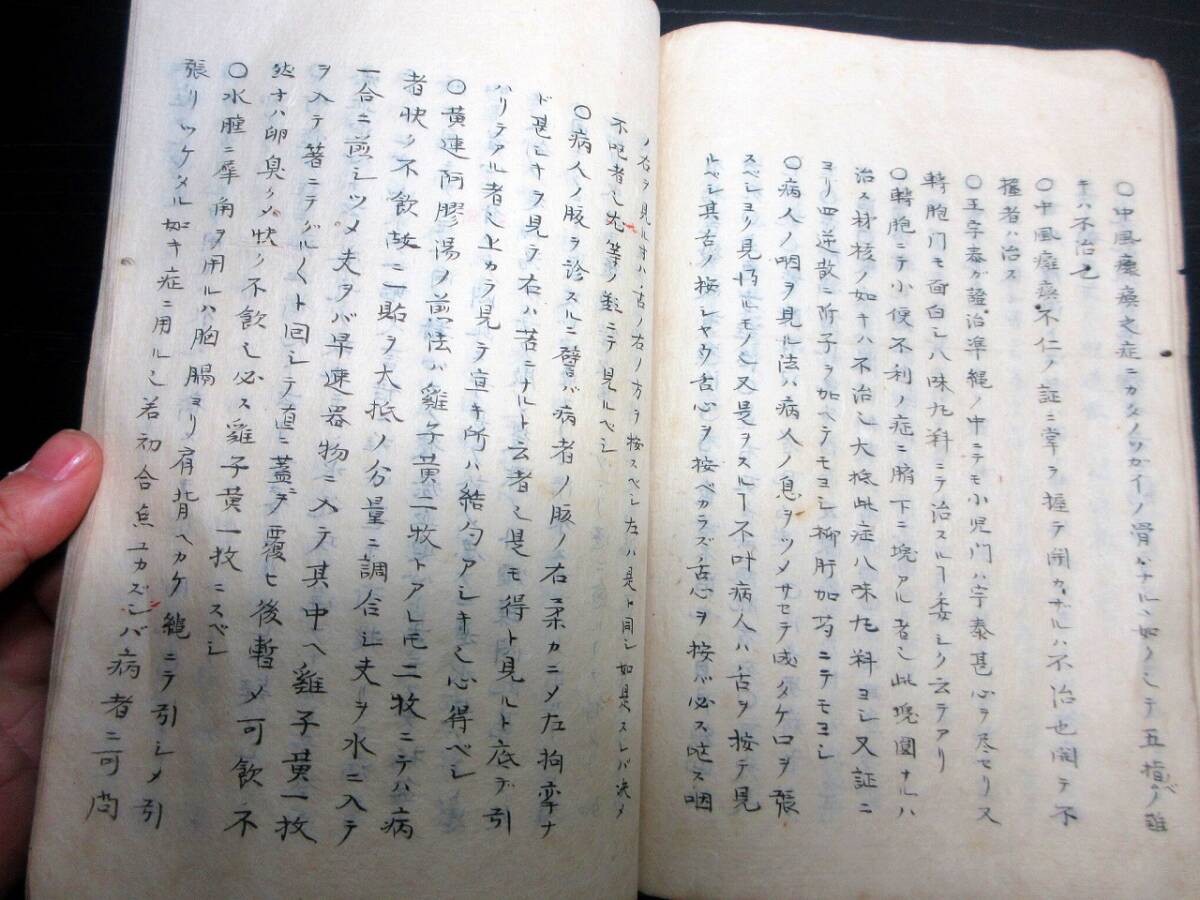 〇中風癱瘓之症ニカタノツカイノ骨ハナルヽ如クシテ五指ノベ難
キハ不治也
〇中風癱瘓不仁ノ証ニ掌ヲ握テ開カザルハ不治也開テ不
握者ハ治ス
〇王宇泰ガ證治準縄ノ中ニテモ小児門ハ宇泰甚心ヲ尽セリ又
轉胞門モ面白シ八味丸料ニテ治スルヿ委シク云テアリ
〇轉胞ニテ小便不利ノ症ニ臍下ニ塊アル者也此塊圓ナルハ
治ス材核ノ如キハ不治也大抵此症八味丸料ヨシ又証ニ
ヨリ四逆散ニ附子ヲ加ヘテモヨシ柳肝加芍ニテモヨシ
〇病人ノ咽ヲ見ル法ハ病人ノ息ヲツメサセテ成タケ口ヲ張
スベシヨリ見ルモノ也又是ヲスルヿ不叶病人ハ舌ヲ按テ見
ルベシ其舌ノ按シヤウ舌心ヲ按ベカラズ舌心ヲ按バ必ス吃ス咽
ノ右ヲ見ルオハ舌ノ右ノ方ヲ按スベシ左ハ是ト同シ如是スレバ决メ
不吃者也尤等ノ類ニテ見ルベシ
〇病人ノ腹ヲ診スルニ譬バ病者ノ腹ノ右柔カニメ左拘挛ナ
ド甚シキヲ見テ右ハ苦ニナルト云者也是モ得ト見ルト底デ引
ハリテアル者也上カラ見テ宣キ所ハ結句アシキ也心得ベシ
〇黄連阿膠湯ノ煎法ハ雞子黄二牧トアレ𪜈二牧ニテハ病
者快ク不飲故ニ一貼ヲ大抵ノ分量ニ調合シ夫ヲ水ニ入テ
一合ニ煎シツメ夫ヲバ早速器物ニ入テ其中ヘ雞子黄一枚
ヲ入テ著ニテグル〱ト回シテ直ニ蓋デ覆ヒ後暫メ可飲不
然ナハ卵臭クメ快ク不飲也必ス雞子黄一枚ニスベシ
〇水腫ニ犀角ヲ用ルハ胸腸ヨリ肩背ヘカケ縄ニテ引シメ引
張リツケタル如キ症ニ用ル也若初合点ユカズンバ病者ニ可問